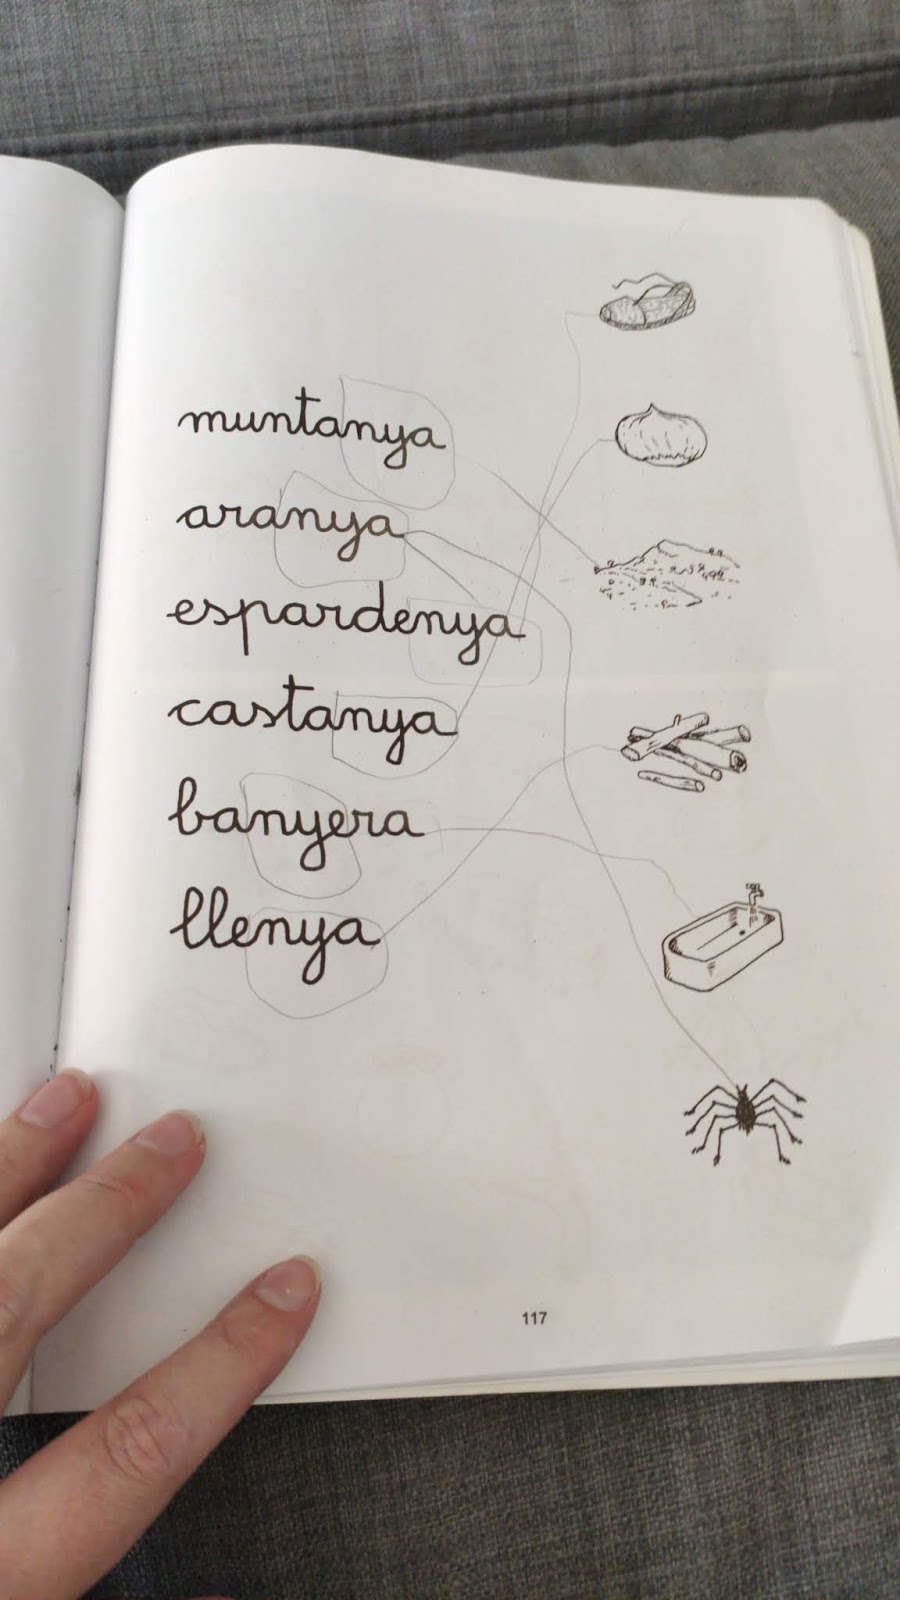 muntanya
aranya
espardenya
castanya
banyera
llenya
117